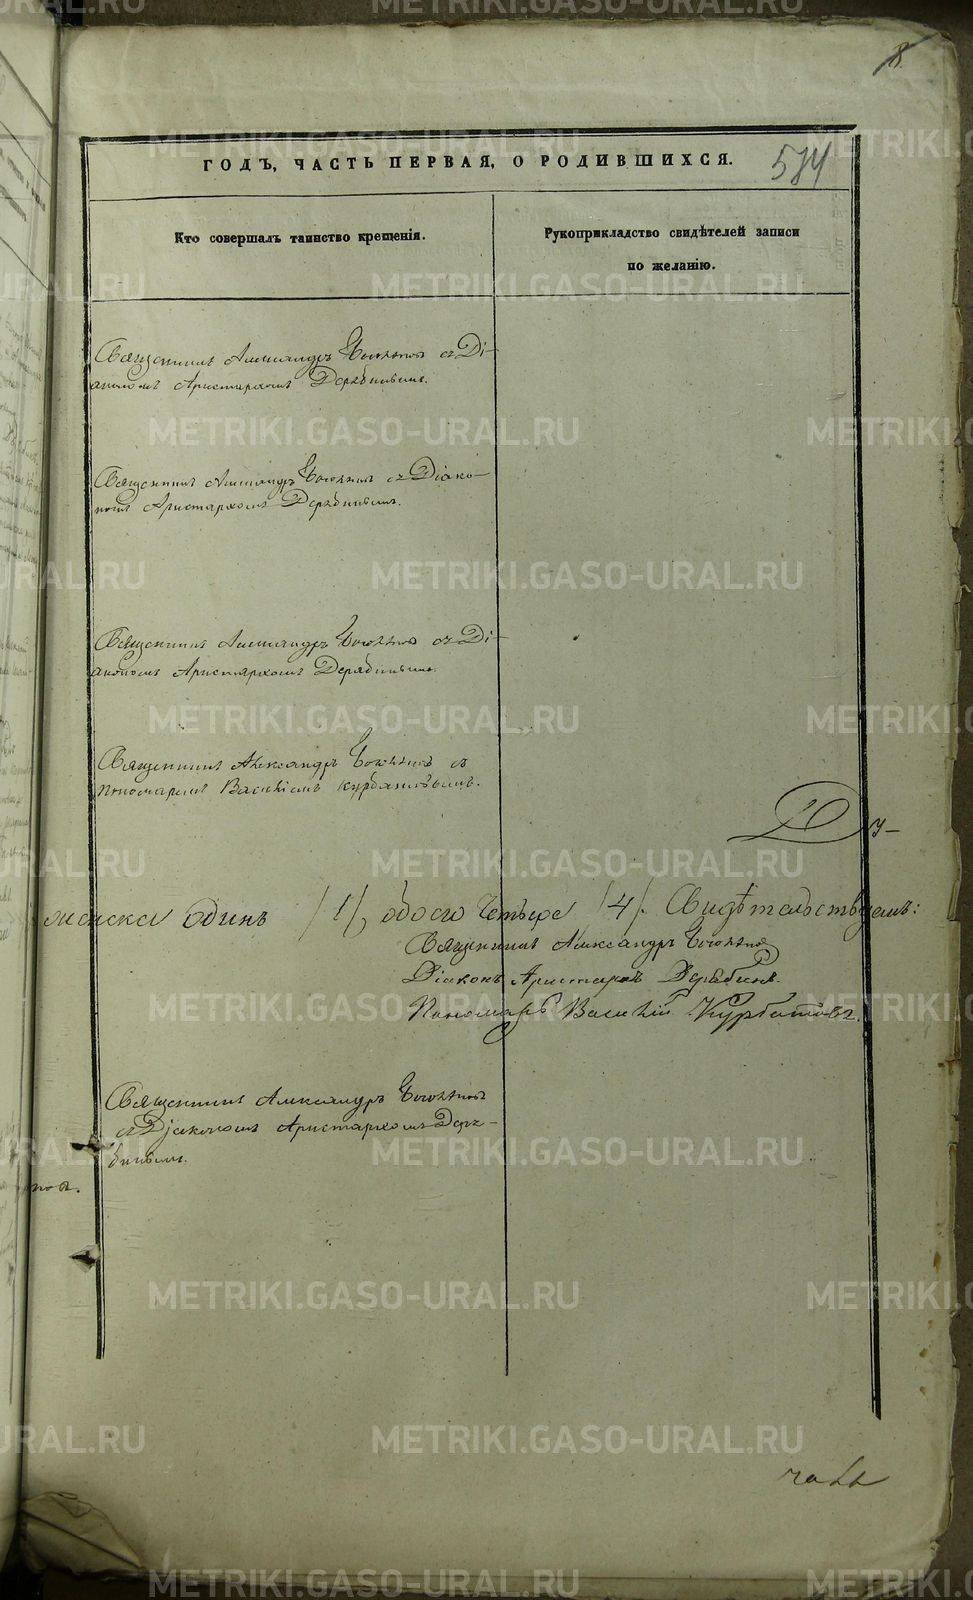 8
ГОДЪ, ЧАСТЬ ПЕРВАЯ, О РОДИВШИХСЯ.
584
Кто совершалъ таинство крещенія.
Рукоприкладство свидѣтелей записи
по желанію.
Священникъ Александръ съ Ді-
акономъ Аристархомъ Дерябинымъ.
Священникъ Александръ съ Діако-
номъ Аристархомъ Дерябинымъ.
Священникъ Александръ съ Ді-
акономъ Аристархомъ Дерябинымъ.
Священникъ Александръ съ
пономаремъ Василіемъ Курбатовымъ.
женска одинъ /1/, обоего четыре /4/. Свидѣтельствуемъ:
Священникъ Александръ
Діаконъ Аристархъ Дерябинъ.
Пономарь Василій Курбатовъ.
Священникъ Александръ
съ Діакономъ Аристархомъ Деря-
бинымъ.
METRIKI.GASO-URAL.RU